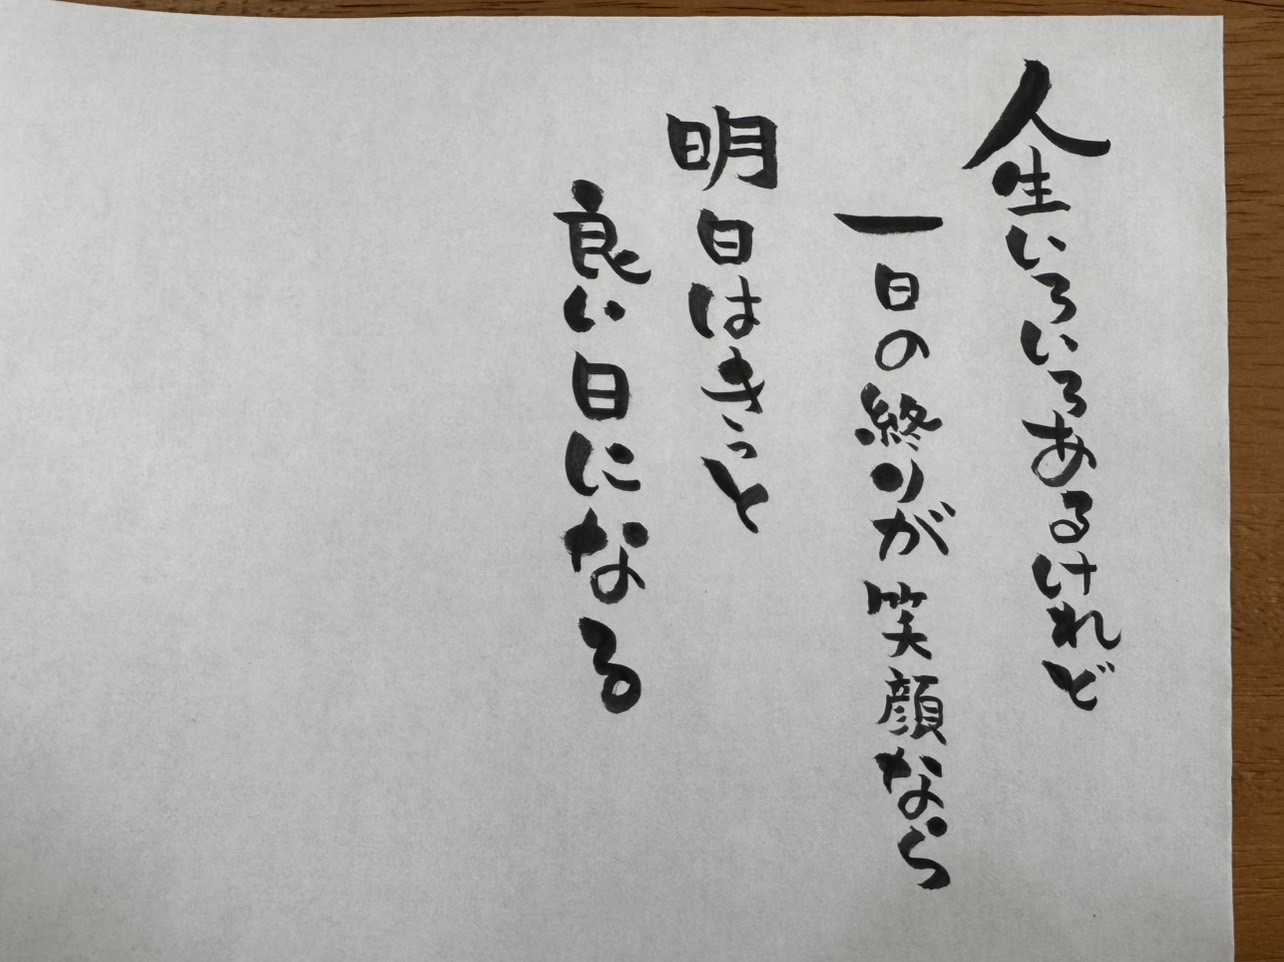 人生いろいろあるけれど
一日の終りが笑顔なら
明日はきっと
良い日になる